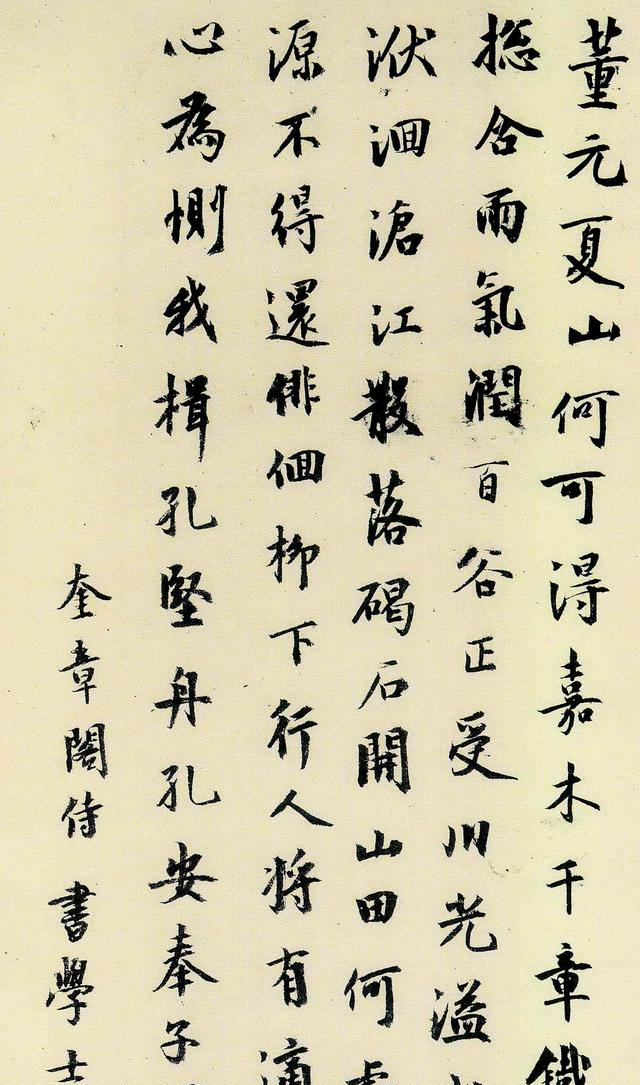 董元夏山何可得嘉木千章鐵
揔含雨氣潤百谷正受川光溢
洑洄滄江散落碣石開山田何
源不得還徘徊柳下行人将有
心為惻我楫孔堅舟孔安奉子
奎章閣侍書學士